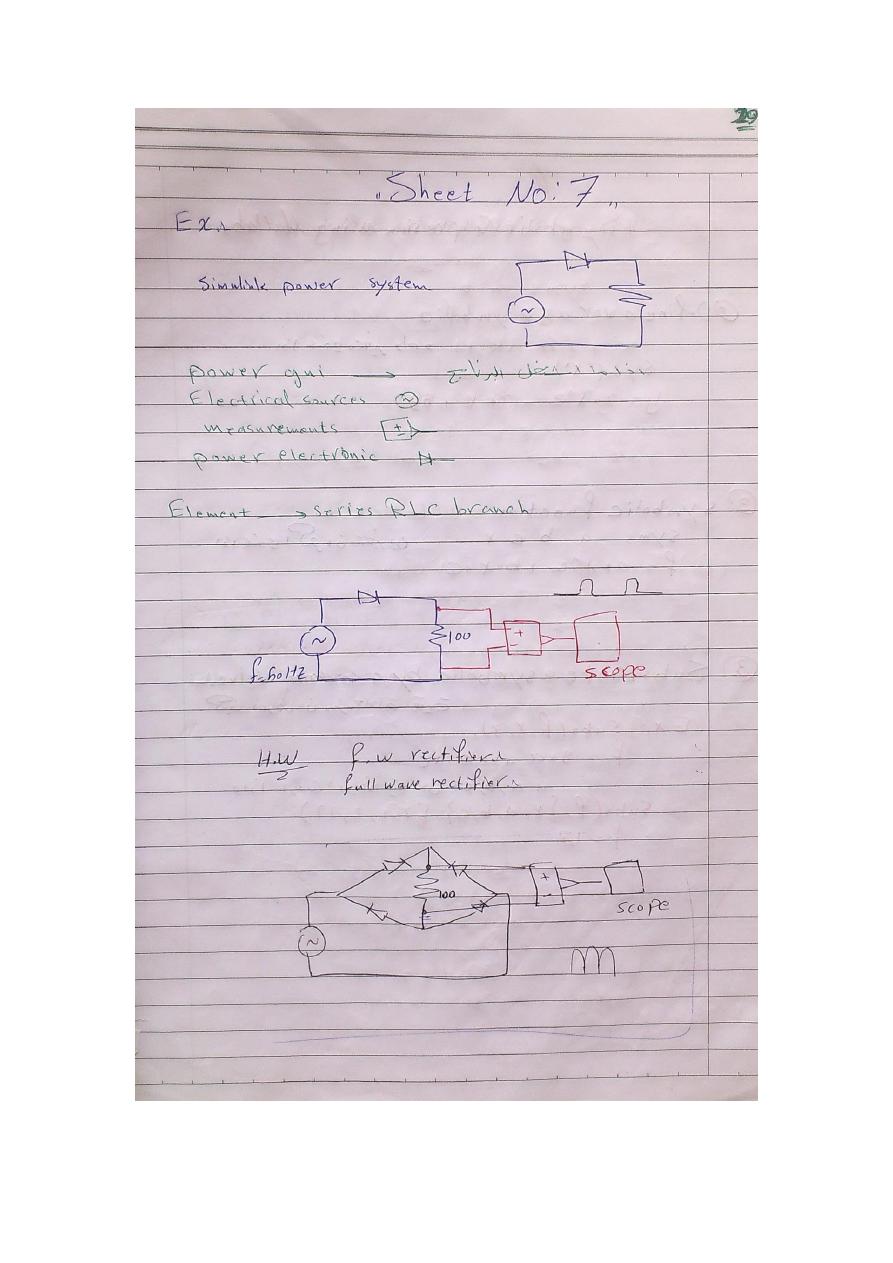 29
"Sheet No: 7"
Ex.
Simulink power system
power gui →
Electrical sources
measurements
power electronic
Element → series RLC branch
100
f=60HZ
scope
H.W
2
f.w rectifier.
full wave rectifier.
100
scope